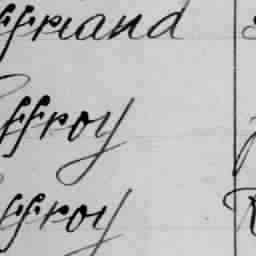 ffriand
ffroy
ffroy